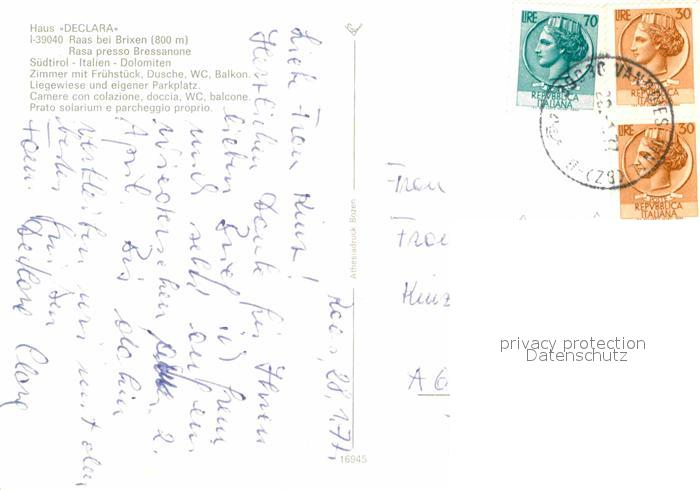 Haus »DECLARA«
I-39040 Raas bei Brixen (800 m)
Rasa presso Bressanone
Südtirol - Italien - Dolomiten
Zimmer mit Frühstück, Dusche, WC, Balkon.
Liegewiese und eigener Parkplatz.
Camere con colazione, doccia, WC, balcone.
Prato solarium e parcheggio proprio.
Raas, 28.1.77.
Liebe Frau Kinz!
Herzlichen Dank für Ihren
lieben Brief. Wir freuen
uns sehr auf ein
Wiedersehen 2.
April. Bis dahin
verbleiben wir mit den
besten Grüßen
Fam. Declara Clara
Athesiadruck Bozen
16945
LIRE 70
REPVBBLICA
ITALIANA
LIRE 30
REPVBBLICA
ITALIANA
LIRE 30
REPVBBLICA
ITALIANA
(BZ)
Frau
Kinz
A 6
privacy protection
Datenschutz